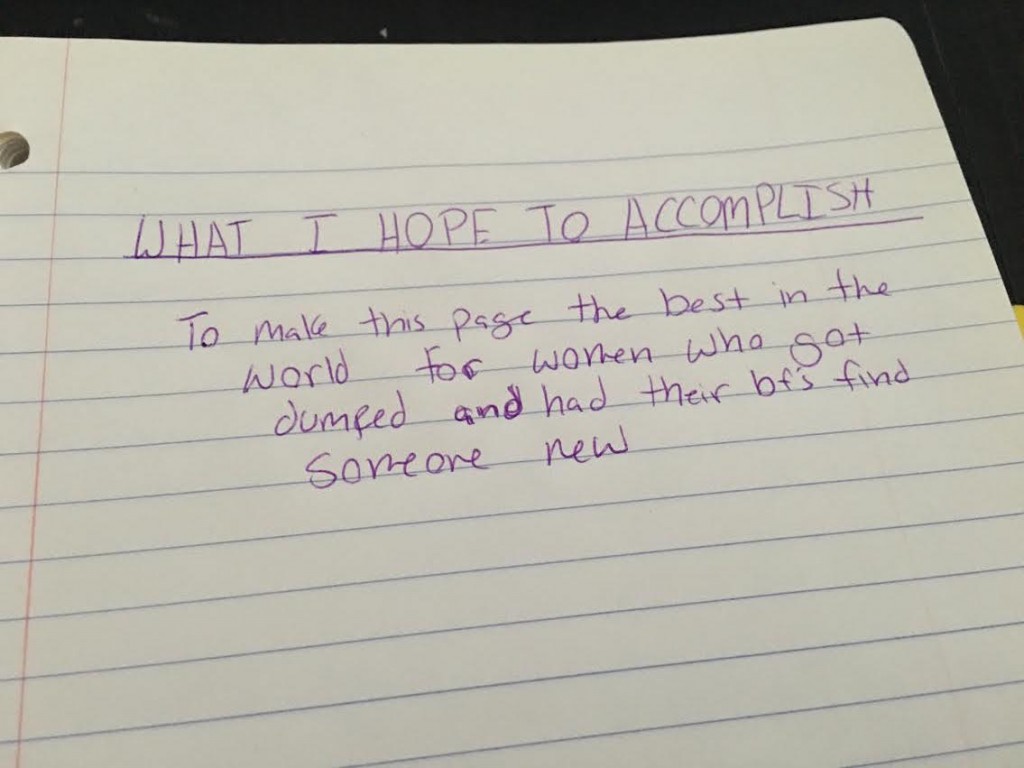 WHAT I HOPE TO ACCOMPLISH
To make this page the best in the
world for women who got
dumped and had their bf's find
someone new